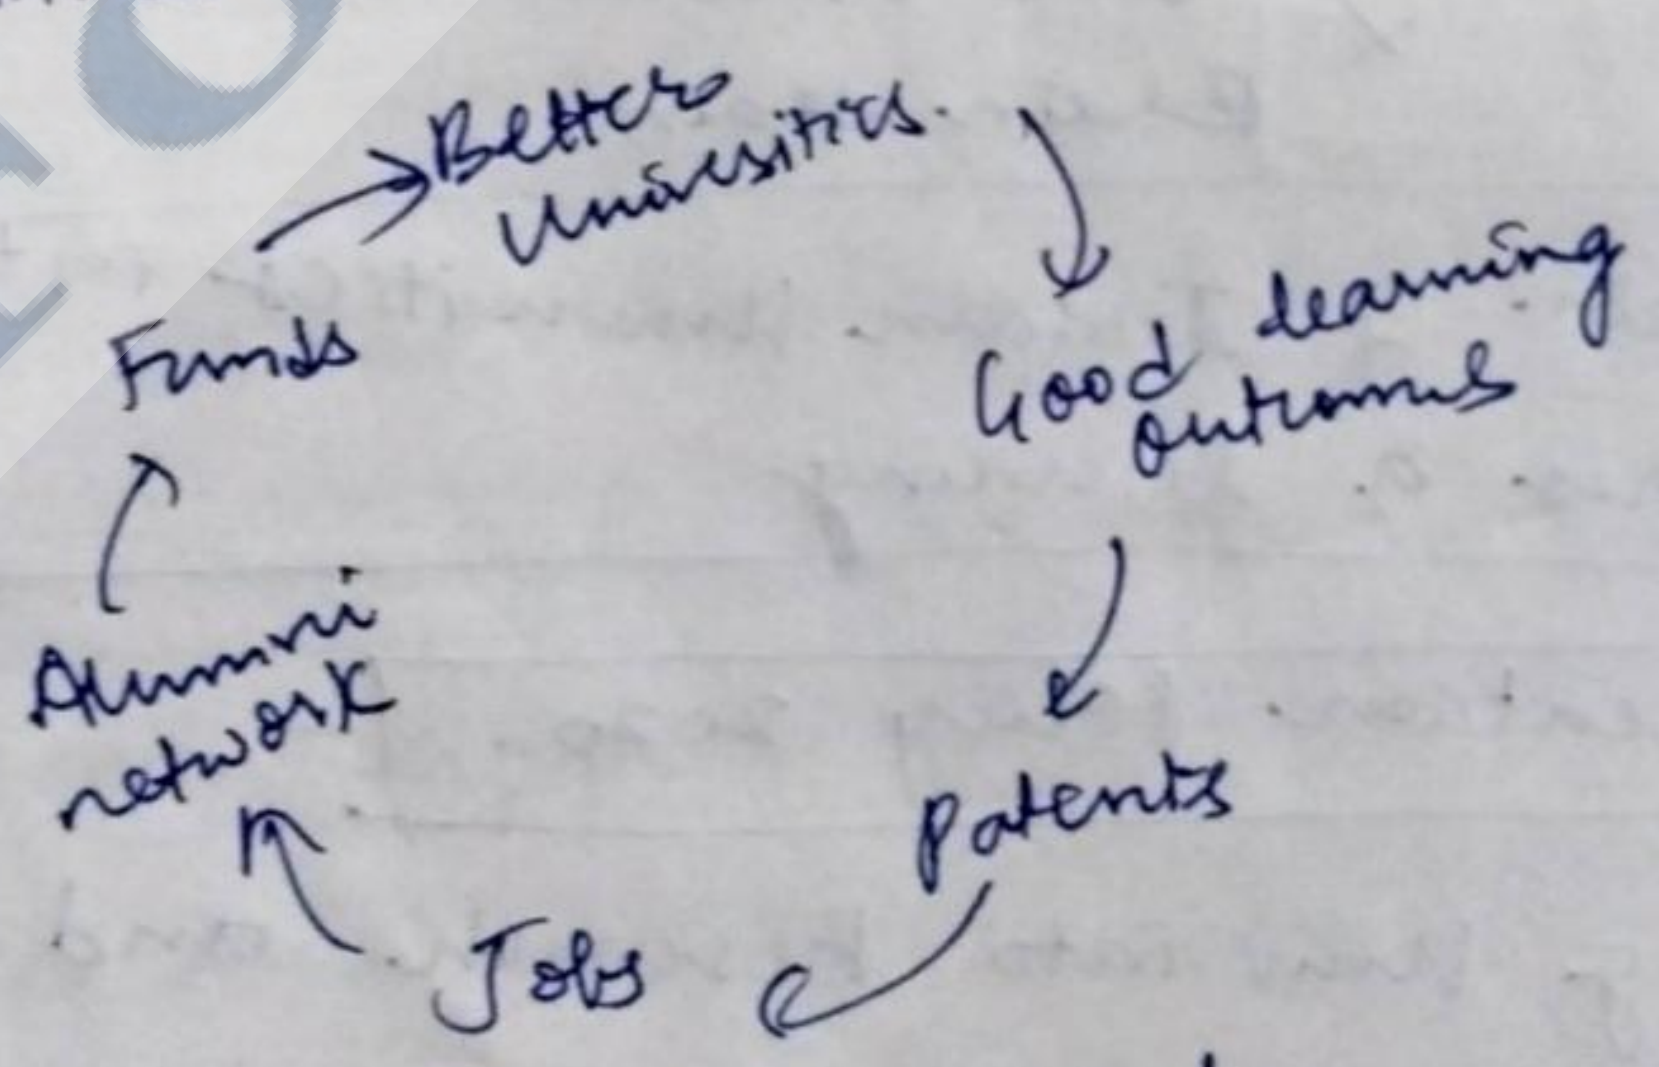 Better
Universities.
Good learning
outcomes
Patents
Jobs
Alumni
network
Funds